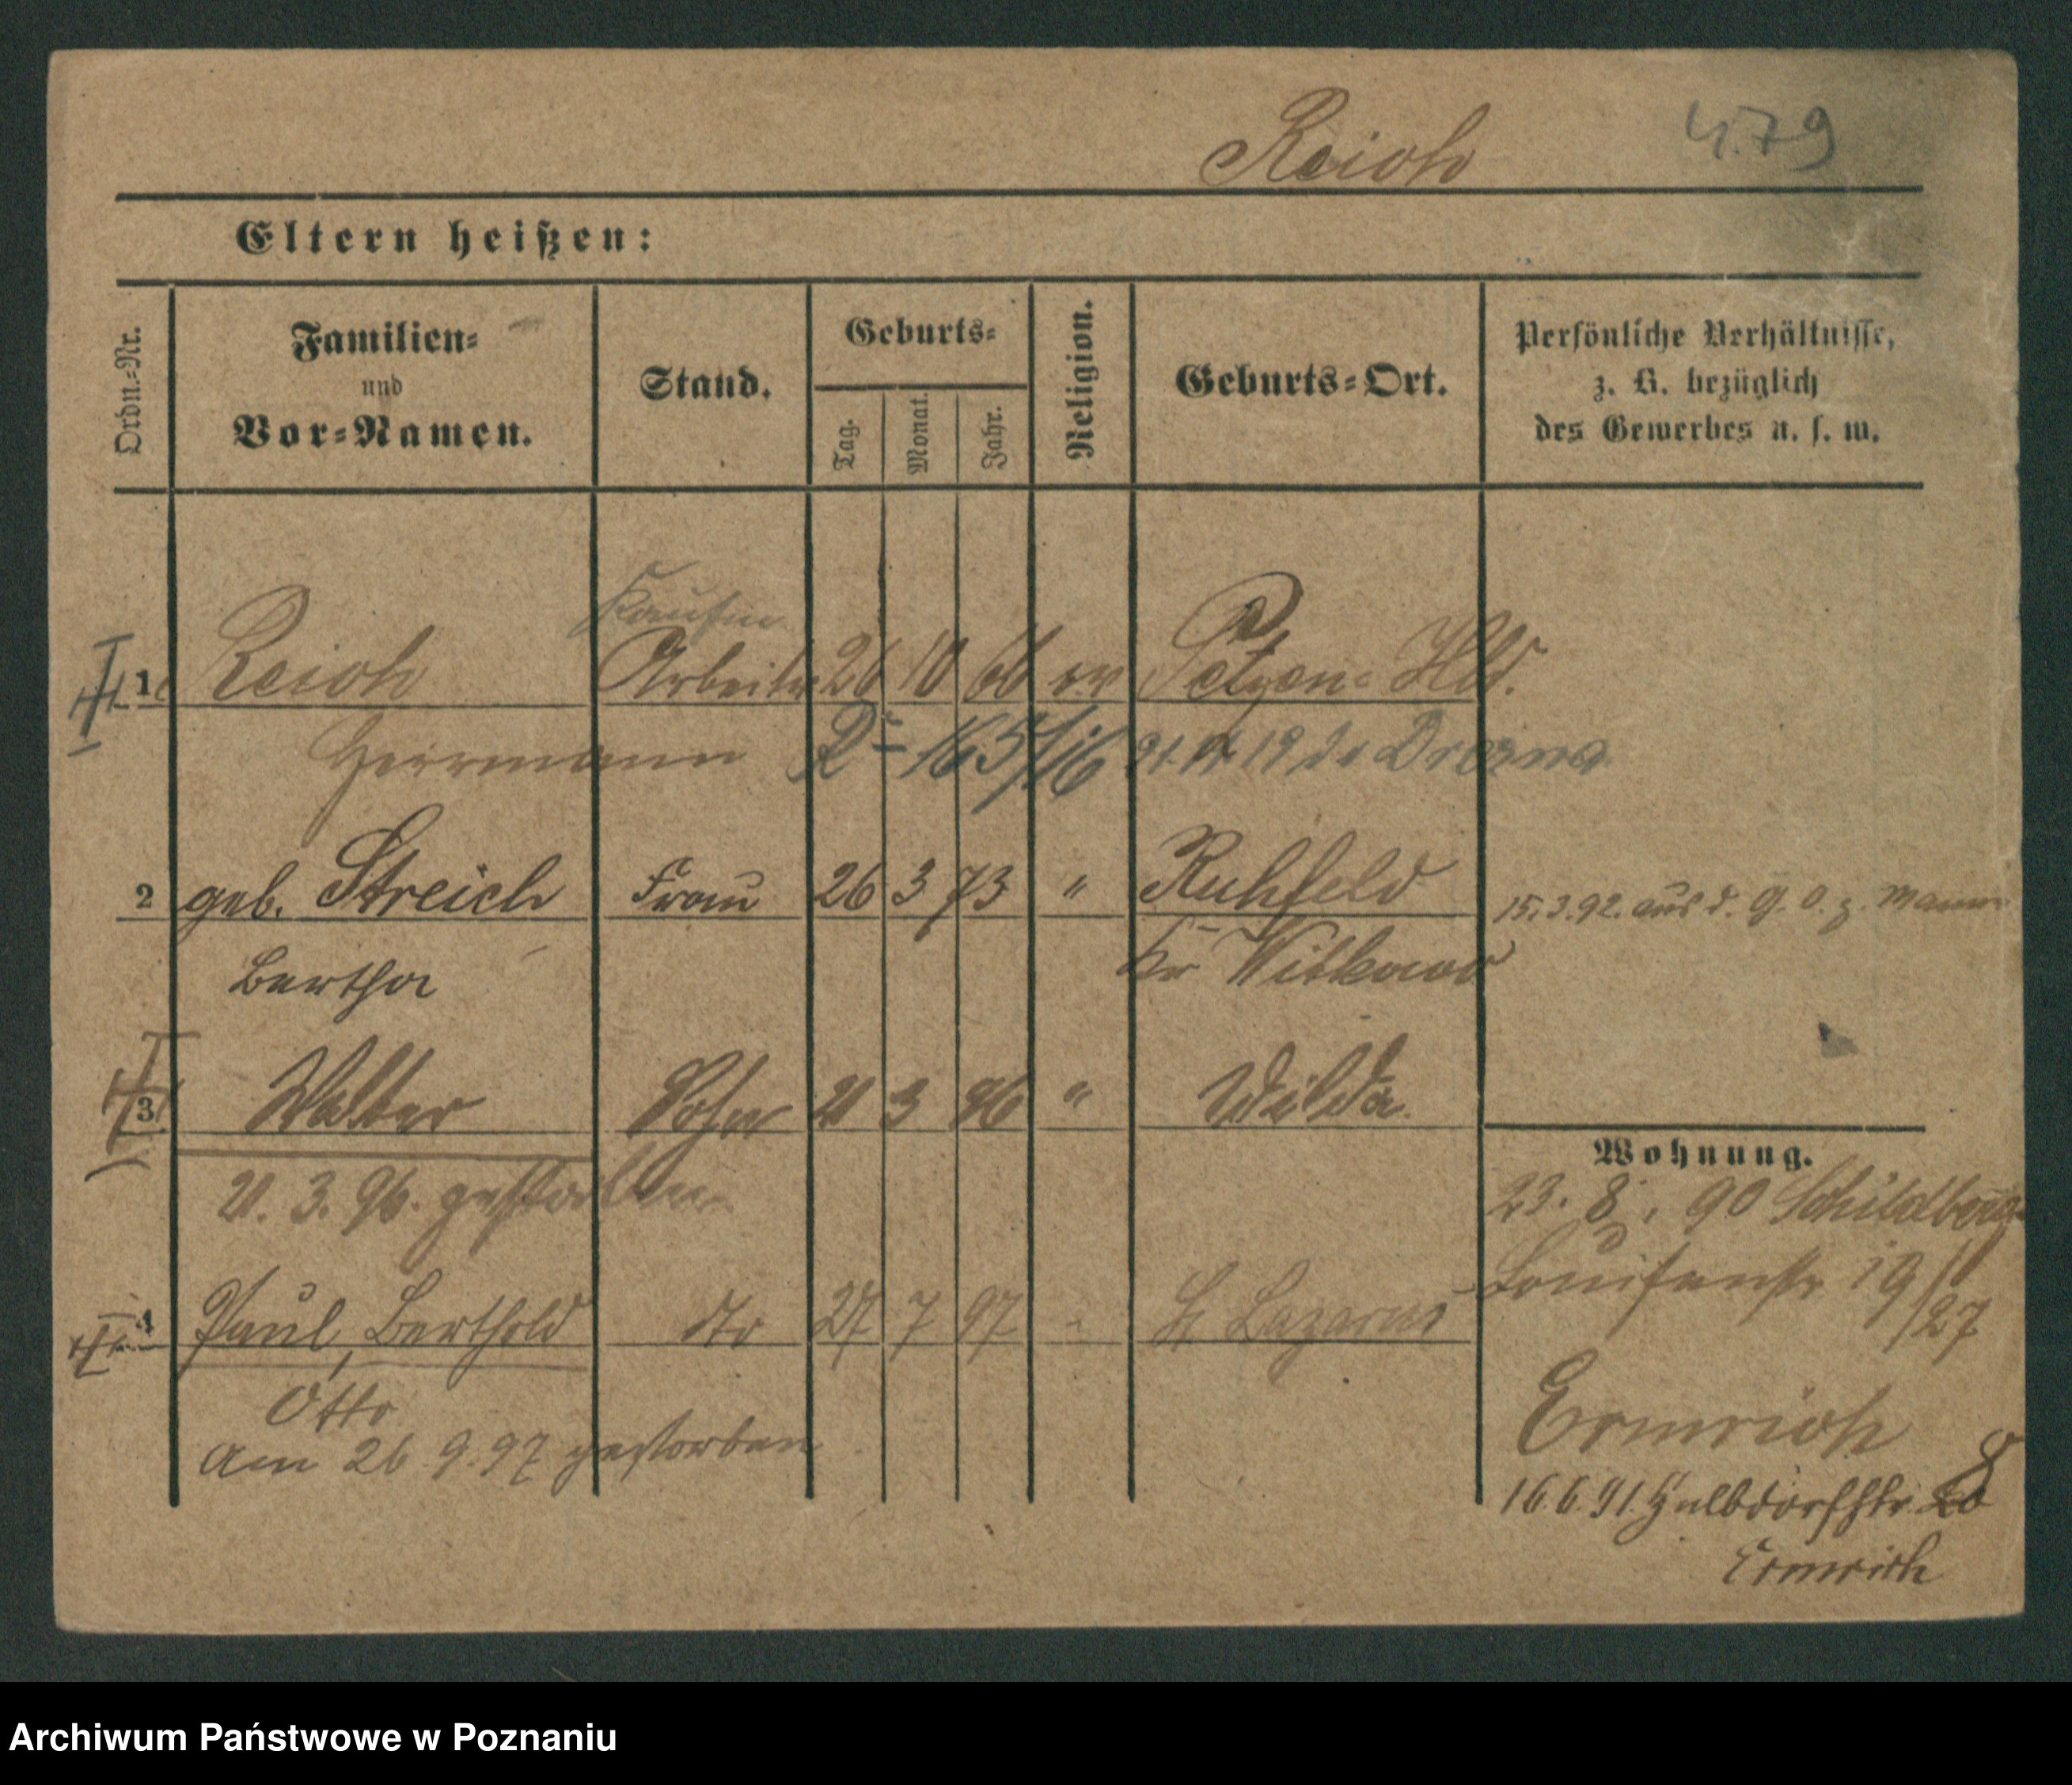 Reich 4.79
Eltern heißen:
Ordn.-Nr.
Familien-
und
Vor-Namen.
Stand.
Geburts-
Tag.
Monat.
Jahr.
Religion.
Geburts-Ort.
Persönliche Verhältnisse,
z. B. bezüglich
des Gewerbes u. s. w.
Kaufm
1 Reich Arbeiter 26 10 66 ev Hld.
Herrmann 19 do Drezna
2 geb. Streich Frau 26 3 73 " Ruhfeld 15.3.92. aus d. g. O. z. Mann
Bertha Kr Witkowo
3 Walter Sohn 21 3 96 " Wilda
21. 3. 96. gestorben
4 Paul, Berthold dto 27 7 97 - St Lazarus
Otto
am 26 9. 97 gestorben
Wohnung.
23. 8. 90 Schildberg
Louisenstr 19
/27
Ermrich
16.6.91. Halbdorfstr.
Ermrich
Archiwum Państwowe w Poznaniu